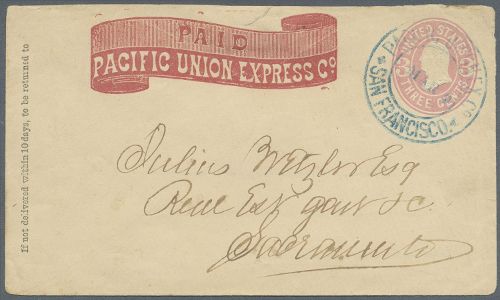 PAID
PACIFIC UNION EXPRESS Co.
UNITED STATES
THREE CENTS
SAN FRANCISCO.
If not delivered within 10 days, to be returned to
Julius Wetzlar Esq
Real Est
Sacramento